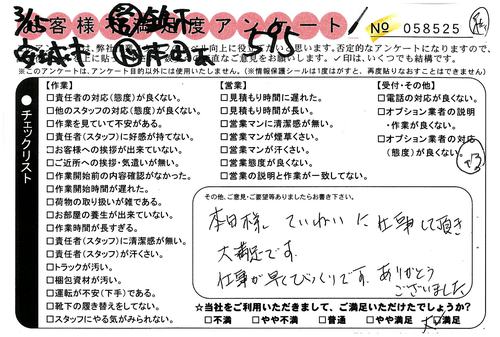 3/15
お客様満足度アンケート
安城市
595
No 058525
アンケートは、弊社
レベル向上に役立てたいと思います。否定的なアンケートになりますので、
直なご意見をお願いします。✓印は、いくつでも結構です。
※このアンケートは、アンケート目的以外には使用いたしません。(※情報保護シールは1度はがすと、再度貼りなおすことはできません)
チェックリスト
【作業】
□責任者の対応(態度)が良くない。
□他のスタッフの対応(態度)が良くない。
□作業を見ていて不安がある。
□責任者(スタッフ)に好感が持てない。
□お客様への挨拶が出来ていない。
□ご近所への挨拶・気遣いが無い。
□作業開始前の内容確認がなかった。
□作業開始時間が遅れた。
□荷物の取り扱いが雑である。
□お部屋の養生が出来ていない。
□作業時間が長すぎる。
□責任者(スタッフ)に清潔感が無い。
□責任者(スタッフ)が汗くさい。
□トラックが汚い。
□梱包資材が汚い。
□運転が不安(下手)である。
□靴下の履き替えをしてない。
□スタッフにやる気がみられない。
【営業】
□見積もり時間に遅れた。
□営業マンに清潔感が無い。
□見積もり時間が長い。
□営業マンが煙草くさい。
□営業マンが汗くさい。
□営業態度が良くない。
□営業の説明と作業が一致してない。
【受付・その他】
□電話の対応が良くない。
□オプション業者の説明
・作業が良くない。
□オプション業者の対応
(態度)が良くない。
その他、ご意見・ご要望等ありましたらお書き下さい。
本日様、ていねいに仕事して頂き
大満足です。
仕事が早くてびっくりです。ありがとう
ございました
☆当社をご利用いただきまして、ご満足いただけたでしょうか?
□不満 □やや不満 □普通 □やや満足 □大満足